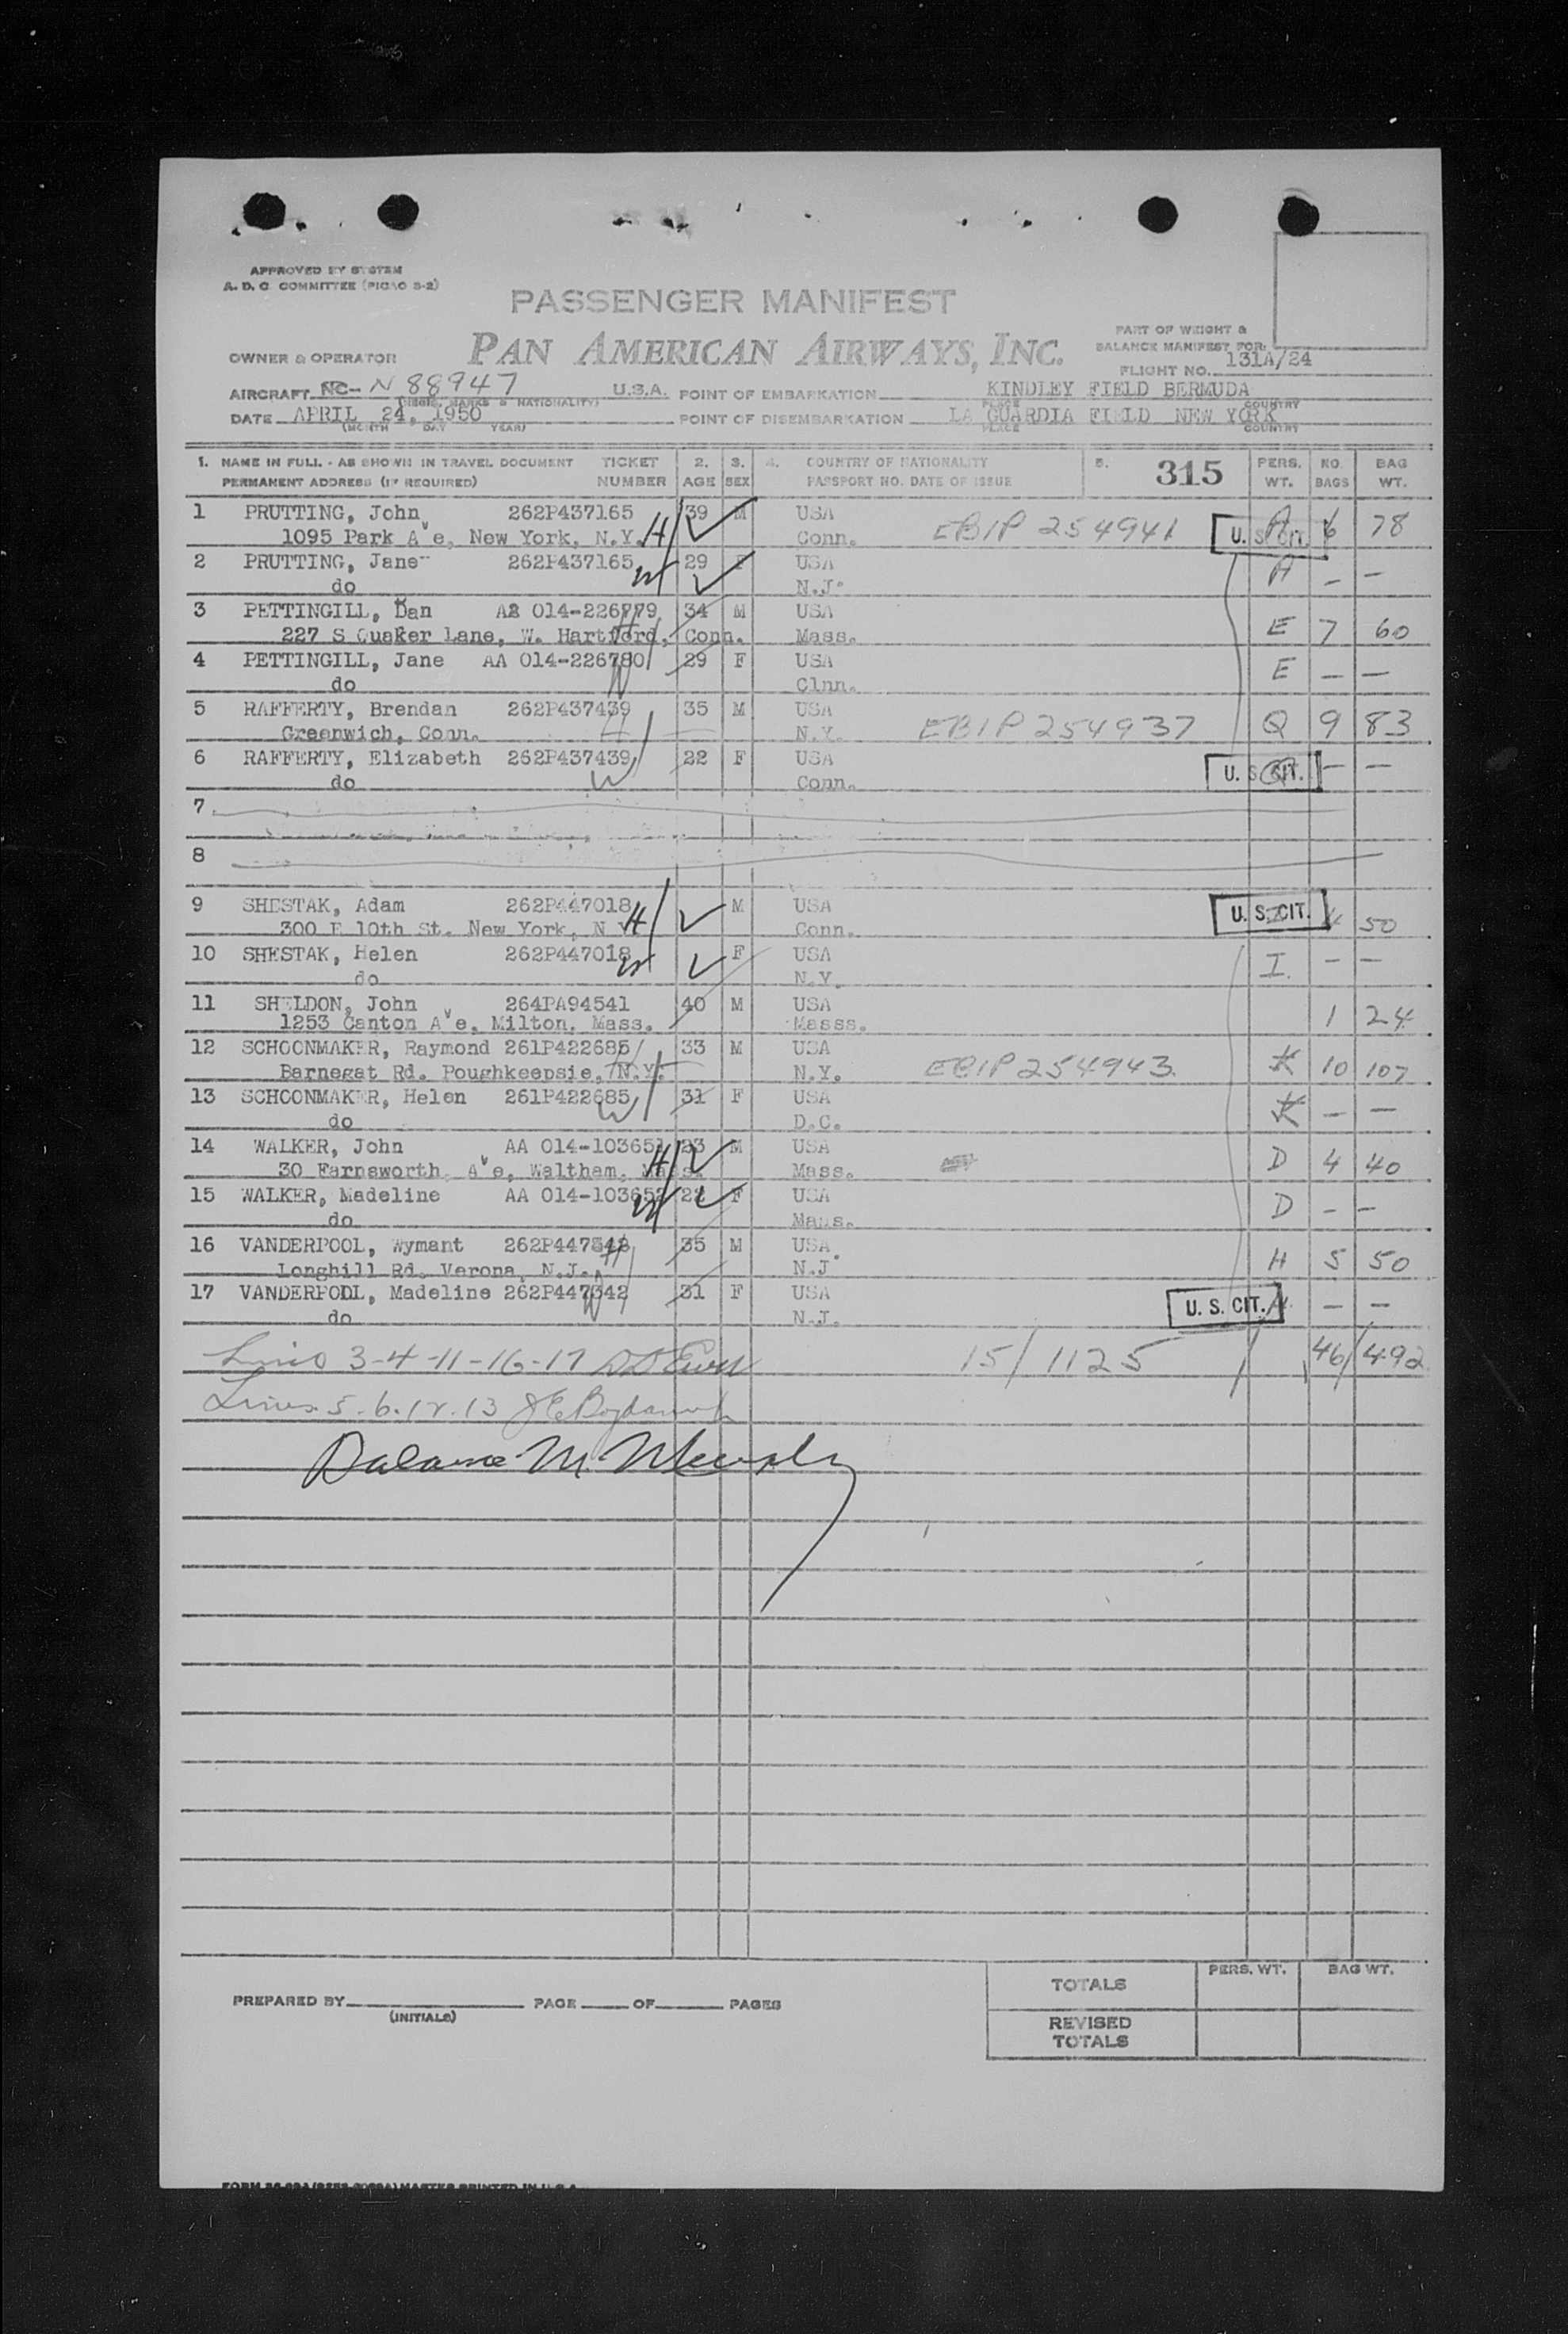 APPROVED BY SYSTEM
A. D. C. COMMITTEE (PICAO S-2)
PASSENGER MANIFEST
PAN AMERICAN AIRWAYS, INC.
PART OF WEIGHT &
BALANCE MANIFEST FOR:
OWNER & OPERATOR
FLIGHT NO. 131A/24
AIRCRAFT NC- N 88947 U.S.A. POINT OF EMBARKATION KINDLEY FIELD BERMUDA
MARKS & NATIONALITY) PLACE COUNTRY
DATE APRIL 24, 1950 POINT OF DISEMBARKATION LA GUARDIA FIELD NEW YORK
(MONTH DAY YEAR) PLACE COUNTRY
1. NAME IN FULL - AS SHOWN IN TRAVEL DOCUMENT TICKET 2. 3. 4. COUNTRY OF NATIONALITY 5. 315 PERS. NO. BAG
PERMANENT ADDRESS (IF REQUIRED) NUMBER AGE SEX PASSPORT NO. DATE OF ISSUE WT. BAGS WT.
1 PRUTTING, John 262P437165 39 M USA A 6 78
1095 Park Ave, New York, N.Y. H Conn. EBIP 254941 U. S. CIT.
2 PRUTTING, Jane 262P437165 W 29 F USA A - -
do N.J.
3 PETTINGILL, Dan AA 014-226779 34 M USA
227 S Quaker Lane, W. Hartford, Conn. H Mass. E 7 60
4 PETTINGILL, Jane AA 014-226780 29 F USA E - -
do W Clnn.
5 RAFFERTY, Brendan 262P437439 35 M USA
Greenwich, Conn. H N.Y. EBIP 254937 Q 9 83
6 RAFFERTY, Elizabeth 262P437439 22 F USA U. S. CIT. Q - -
do W Conn.
7
8
9 SHESTAK, Adam 262P447018 H M USA U. S. CIT.
300 E 10th St. New York, N Y Conn. 50
10 SHESTAK, Helen 262P447018 W F USA I. - -
do N.Y.
11 SHELDON, John 264PA94541 40 M USA
1253 Canton Ave, Milton, Mass. Masss. 1 24
12 SCHOONMAKER, Raymond 261P422685 33 M USA
Barnegat Rd. Poughkeepsie, N.Y. H N.Y. EBIP 254943 K 10 107
13 SCHOONMAKER, Helen 261P422685 31 F USA K - -
do W D.C.
14 WALKER, John AA 014-103651 23 M USA
30 Farnsworth, Ave, Waltham, Mass. H Mass. D 4 40
15 WALKER, Madeline AA 014-103652 W F USA D - -
do Mass.
16 VANDERPOOL, Wymant 35 M USA
Longhill Rd. Verona, N.J. H N.J H 5 50
17 VANDERPOOL, Madeline 262P447342 31 F USA U. S. CIT. H - -
do W N.J.
Lines 3-4-11-16-17 15/1125 46/492
Lines 5.6.12.13
TOTALS PERS. WT. BAG WT.
PREPARED BY PAGE OF PAGES
(INITIALS)
REVISED
TOTALS